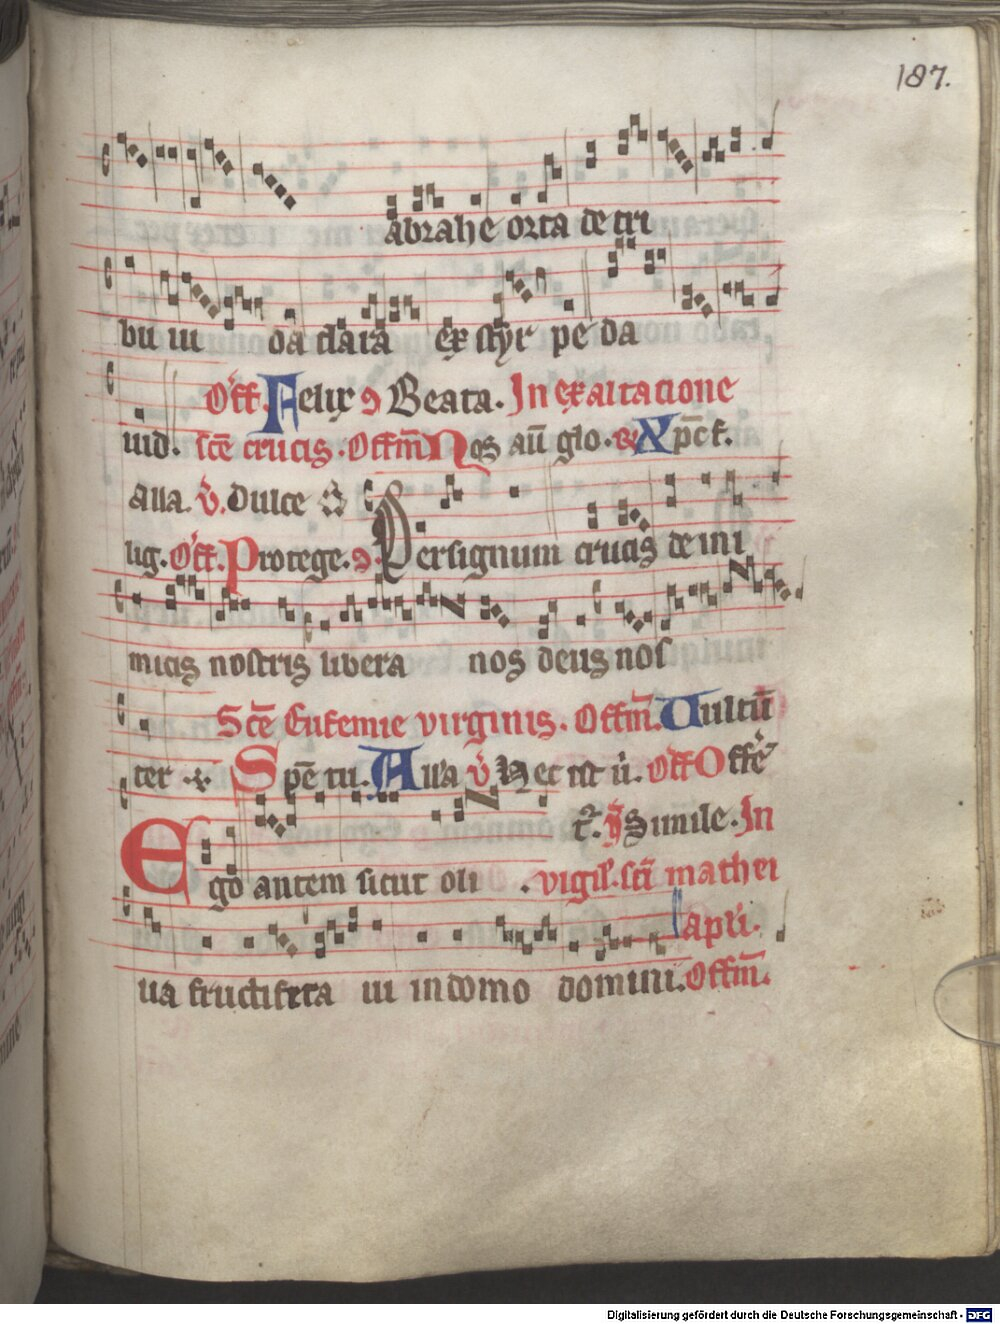 187.
abrahe orta de tri
bu iu da clara ex styr pe da
Off. Felix Beata. In exaltacione
uid. sce crucis. Offm Nos au glo. Xpc f.
alla. v. Dulce
lig. Off. Protege. Per signum crucis de ini
micis nostris libera nos deus nos
Sce Eufemie virginis. Offm. Vultu
ter Spe tu. Alla v Hec est v. Off Offe
Simile. In
Ego autem sicut oli . vigil. sci mathei
apli.
ua fructifera iu in domo domini. Offm.
Digitalisierung gefördert durch die Deutsche Forschungsgemeinschaft - DFG